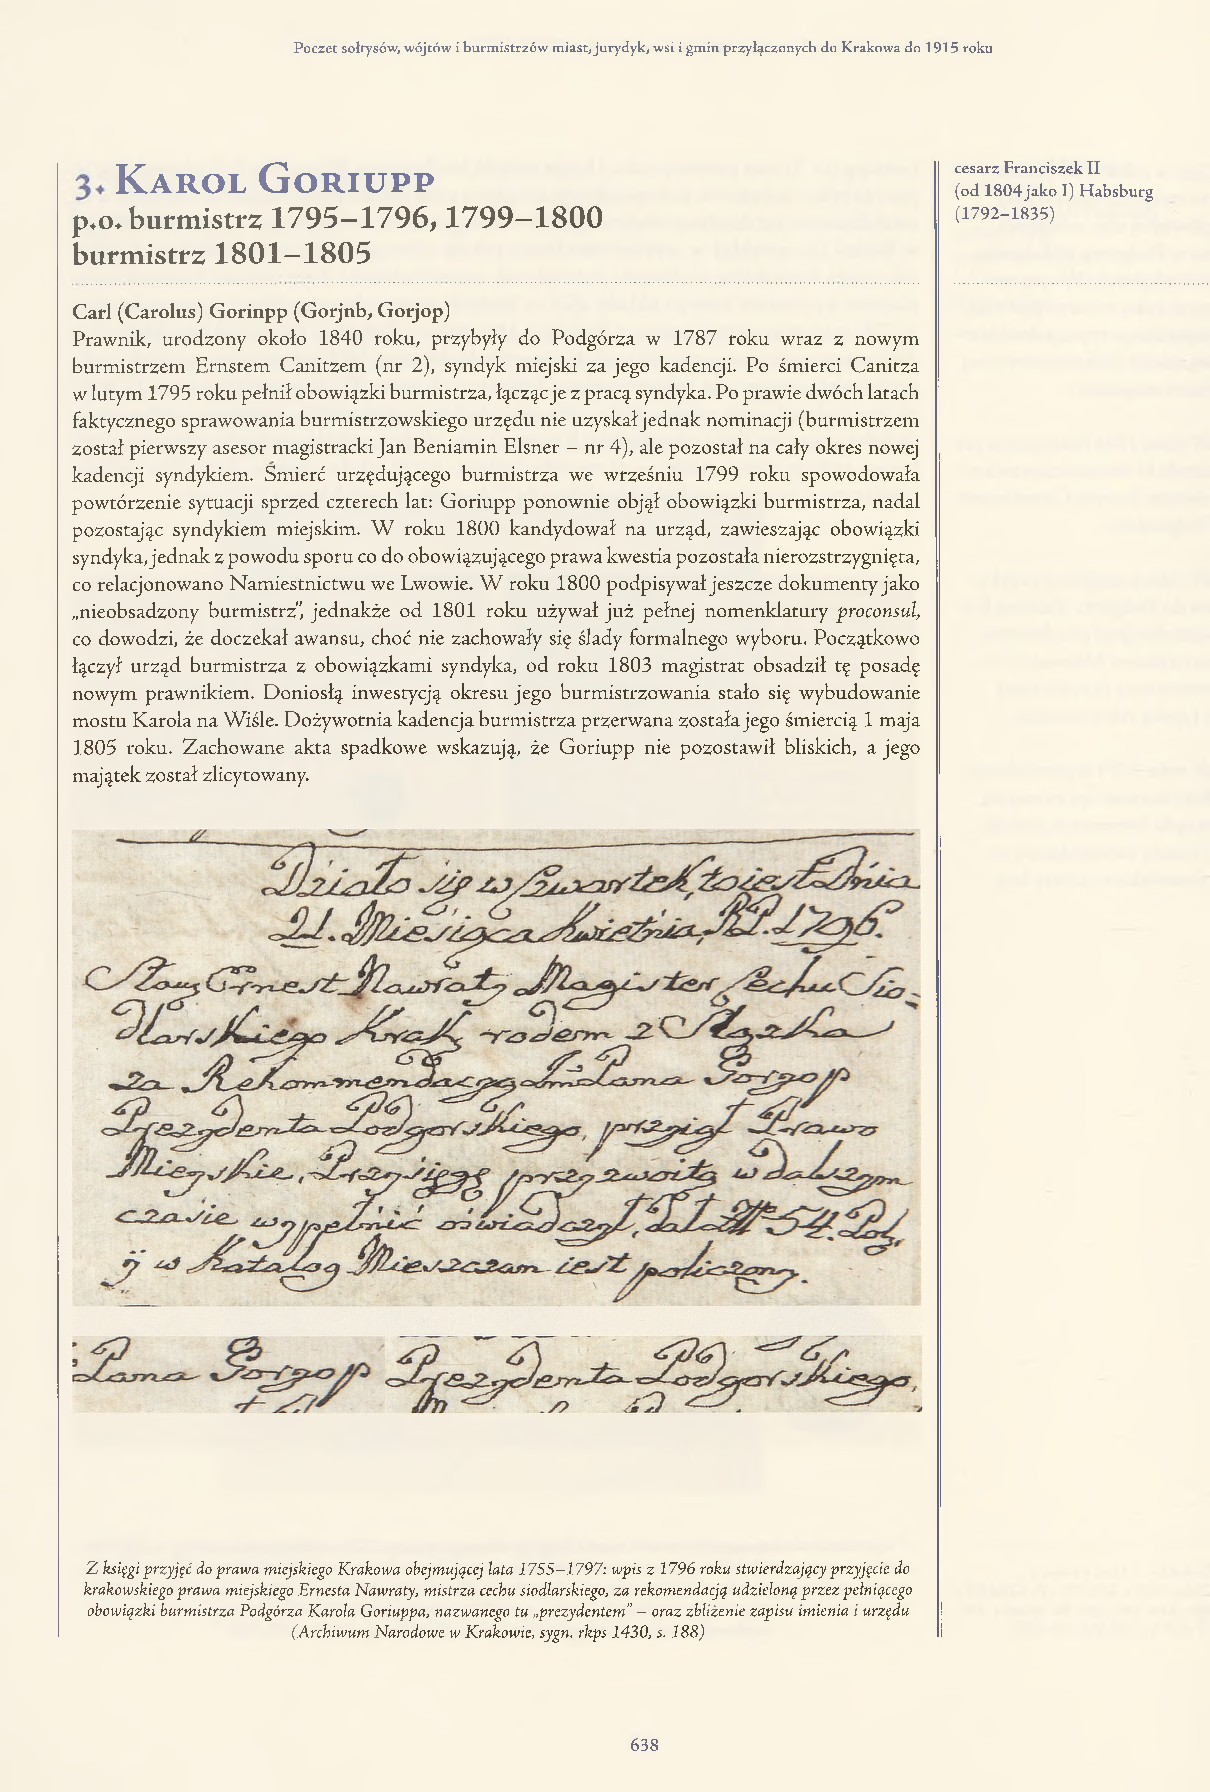 Poczet sołtysów, wójtów i burmistrzów miast, jurydyk, wsi i gmin przyłączonych do Krakowa do 1915 roku
3. Karol Goriupp
p.o. burmistrz 1795–1796, 1799–1800
burmistrz 1801–1805
cesarz Franciszek II
(od 1804 jako I) Habsburg
(1792–1835)
Carl (Carolus) Gorinpp (Gorjnb, Gorjop)
Prawnik, urodzony około 1840 roku, przybyły do Podgórza w 1787 roku wraz z nowym
burmistrzem Ernstem Canitzem (nr 2), syndyk miejski za jego kadencji. Po śmierci Canitza
w lutym 1795 roku pełnił obowiązki burmistrza, łącząc je z pracą syndyka. Po prawie dwóch latach
faktycznego sprawowania burmistrzowskiego urzędu nie uzyskał jednak nominacji (burmistrzem
został pierwszy asesor magistracki Jan Beniamin Elsner – nr 4), ale pozostał na cały okres nowej
kadencji syndykiem. Śmierć urzędującego burmistrza we wrześniu 1799 roku spowodowała
powtórzenie sytuacji sprzed czterech lat: Goriupp ponownie objął obowiązki burmistrza, nadal
pozostając syndykiem miejskim. W roku 1800 kandydował na urząd, zawieszając obowiązki
syndyka, jednak z powodu sporu co do obowiązującego prawa kwestia pozostała nierozstrzygnięta,
co relacjonowano Namiestnictwu we Lwowie. W roku 1800 podpisywał jeszcze dokumenty jako
„nieobsadzony burmistrz”, jednakże od 1801 roku używał już pełnej nomenklatury proconsul,
co dowodzi, że doczekał awansu, choć nie zachowały się ślady formalnego wyboru. Początkowo
łączył urząd burmistrza z obowiązkami syndyka, od roku 1803 magistrat obsadził tę posadę
nowym prawnikiem. Doniosłą inwestycją okresu jego burmistrzowania stało się wybudowanie
mostu Karola na Wiśle. Dożywotnia kadencja burmistrza przerwana została jego śmiercią 1 maja
1805 roku. Zachowane akta spadkowe wskazują, że Goriupp nie pozostawił bliskich, a jego
majątek został zlicytowany.
Działo się w Czwartek, to iest Dnia
21. Miesiąca Kwietnia, R.P. 1796.
Sławz Ernest Nawraty Magister Cechu Sio-
dlarskiego Krak, rodem z Slązka
za Rekommendaczą JmPana Gorzop
Prezydenta Podgorskiego, przyiął Prawo
Mieyskie, Przysięgę przyzwoitą w dalszym
czasie wypełnić oświadczył, Dał Zł 54. Pol,
ÿ w Katalog Mieszczan iest policzony.
Pana Gorzop Prezydenta Podgorskiego,
Z księgi przyjęć do prawa miejskiego Krakowa obejmującej lata 1755–1797: wpis z 1796 roku stwierdzający przyjęcie do
krakowskiego prawa miejskiego Ernesta Nawraty, mistrza cechu siodlarskiego, za rekomendacją udzieloną przez pełniącego
obowiązki burmistrza Podgórza Karola Goriuppa, nazwanego tu „prezydentem” – oraz zbliżenie zapisu imienia i urzędu
(Archiwum Narodowe w Krakowie, sygn. rkps 1430, s. 188)
638